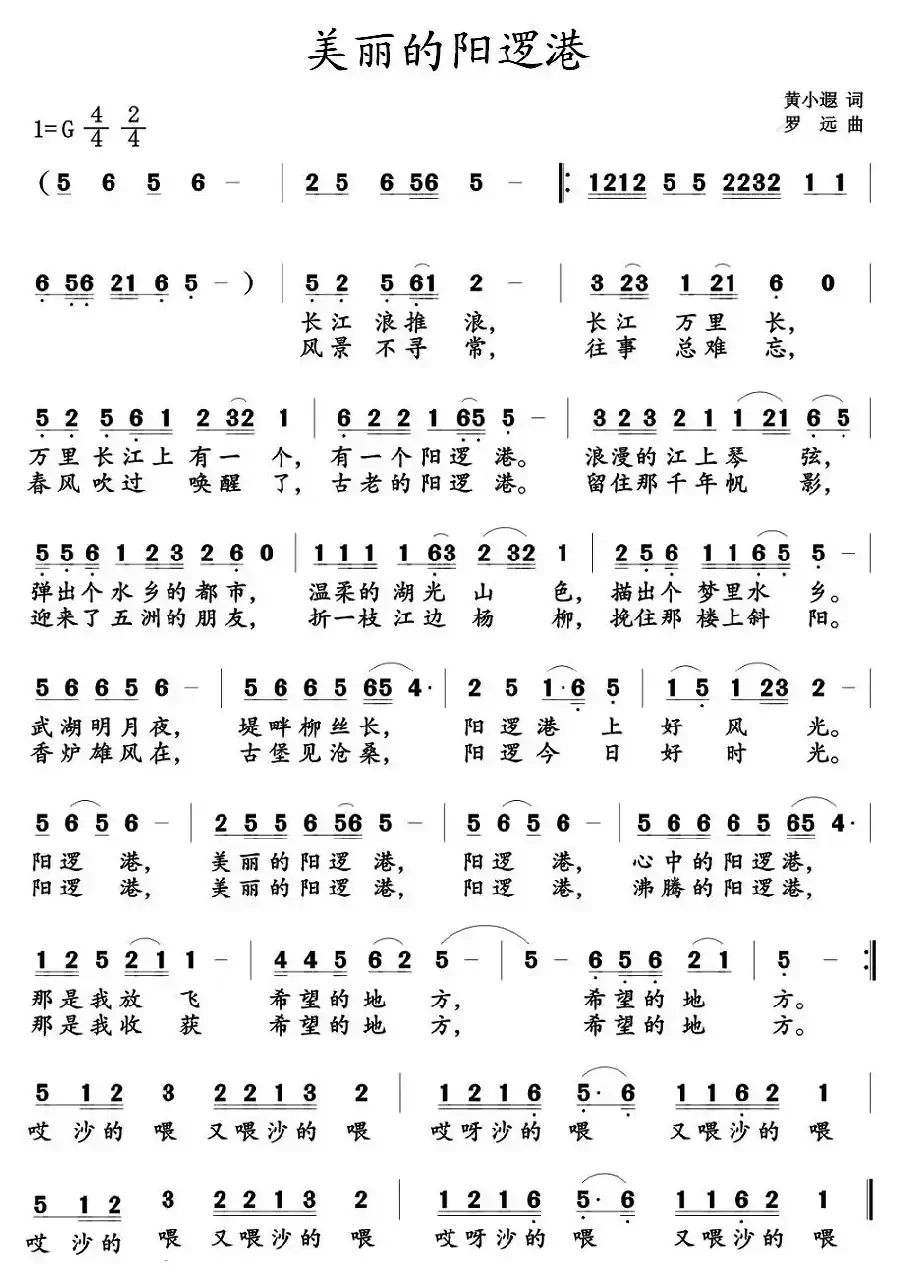 美丽的阳逻港
黄小遐 词
1=G 4/4 2/4
罗 远 曲
( 5 6 5 6 – | 2 5 6 56 5 – |: 1212 5 5 2232 1 1 |
6 56 21 6 5 – ) | 5 2 5 61 2 – | 3 23 1 21 6 0
长江 浪推 浪， 长江 万里 长，
风景 不寻 常， 往事 总难 忘，
5 2 5 6 1 2 32 1 | 6 2 2 1 65 5 – | 3 2 3 2 1 1 21 6 5
万里长江上有一 个， 有一个阳逻 港。 浪漫的江上琴 弦，
春风吹过 唤醒 了， 古老的阳逻 港。 留住那千年帆 影，
5 5 6 1 2 3 2 6 0 | 1 1 1 1 63 2 32 1 | 2 5 6 1 1 6 5 5 – |
弹出个水乡的都市， 温柔的湖光 山 色， 描出个梦里水 乡。
迎来了五洲的朋友， 折一枝江边 杨 柳， 挽住那楼上斜 阳。
5 6 6 5 6 – | 5 6 6 5 65 4· | 2 5 1·6 5 | 1 5 1 23 2 – |
武湖明月夜， 堤畔柳丝长， 阳逻港 上 好 风 光。
香炉雄风在， 古堡见沧桑， 阳逻今 日 好 时 光。
5 6 5 6 – | 2 5 5 6 56 5 – | 5 6 5 6 – | 5 6 6 6 5 65 4· |
阳逻 港， 美丽的阳逻 港， 阳逻 港， 心中的阳逻港，
阳逻 港， 美丽的阳逻 港， 阳逻 港， 沸腾的阳逻港，
1 2 5 2 1 1 – | 4 4 5 6 2 5 – | 5 – 6 5 6 2 1 | 5 – :|
那是我放 飞 希望的地 方， 希望的地 方。
那是我收 获 希望的地 方， 希望的地 方。
5 1 2 3 2 2 1 3 2 | 1 2 1 6 5· 6 1 1 6 2 1 |
哎 沙的 喂 又喂沙的 喂 哎呀沙的 喂 又喂沙的 喂
5 1 2 3 2 2 1 3 2 | 1 2 1 6 5· 6 1 1 6 2 1 ‖
哎 沙的 喂 又喂沙的 喂 哎呀沙的 喂 又喂沙的 喂